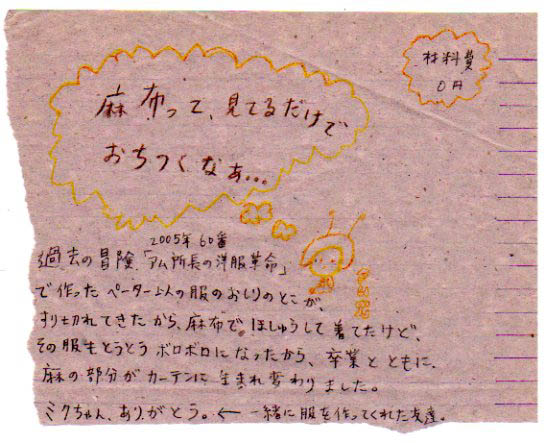 材料費
0円
麻布って、見てるだけで
おちつくなぁ…
2005年60番
過去の冒険「アム所長の洋服革命」
で作ったペーター2人の服のおしりのとこが、
すり切れてきたから、麻布で。ほしゅうして着てたけど、
その服もとうとうボロボロになったから、卒業とともに、
麻の部分がカーテンに生まれ変わりました。
ミクちゃん、ありがとう。← 一緒に服を作ってくれた友達。